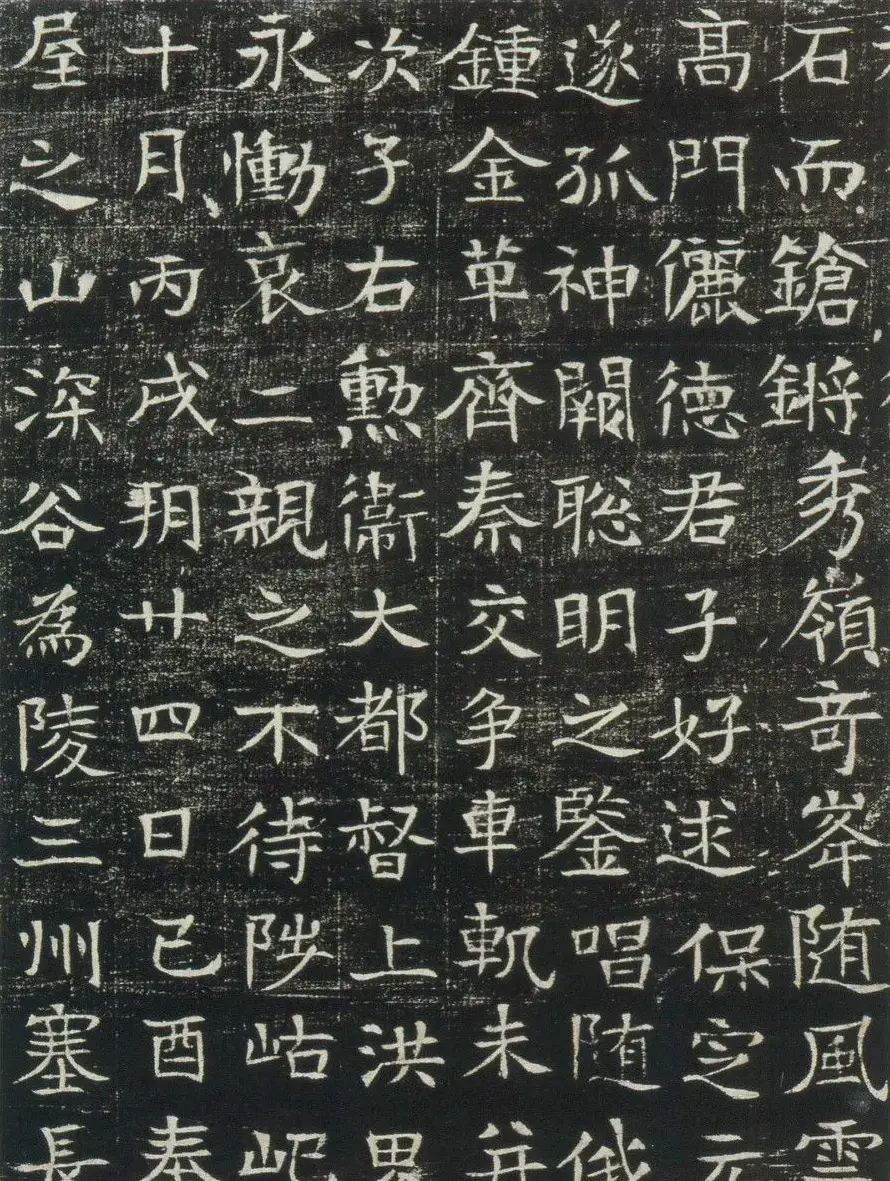 石而鎗鏘秀嶺竒峯随風雲
高門儷德君子好逑保定元
遂孤神闕聡明之鑒唱随俄
鍾金革齊秦交争車軌未并
次子右勲衛大都督上洪男
永慟哀二親之不待陟岵屺
十月丙戌朔廿四日己酉奉
屋之山深谷為陵三州塞長